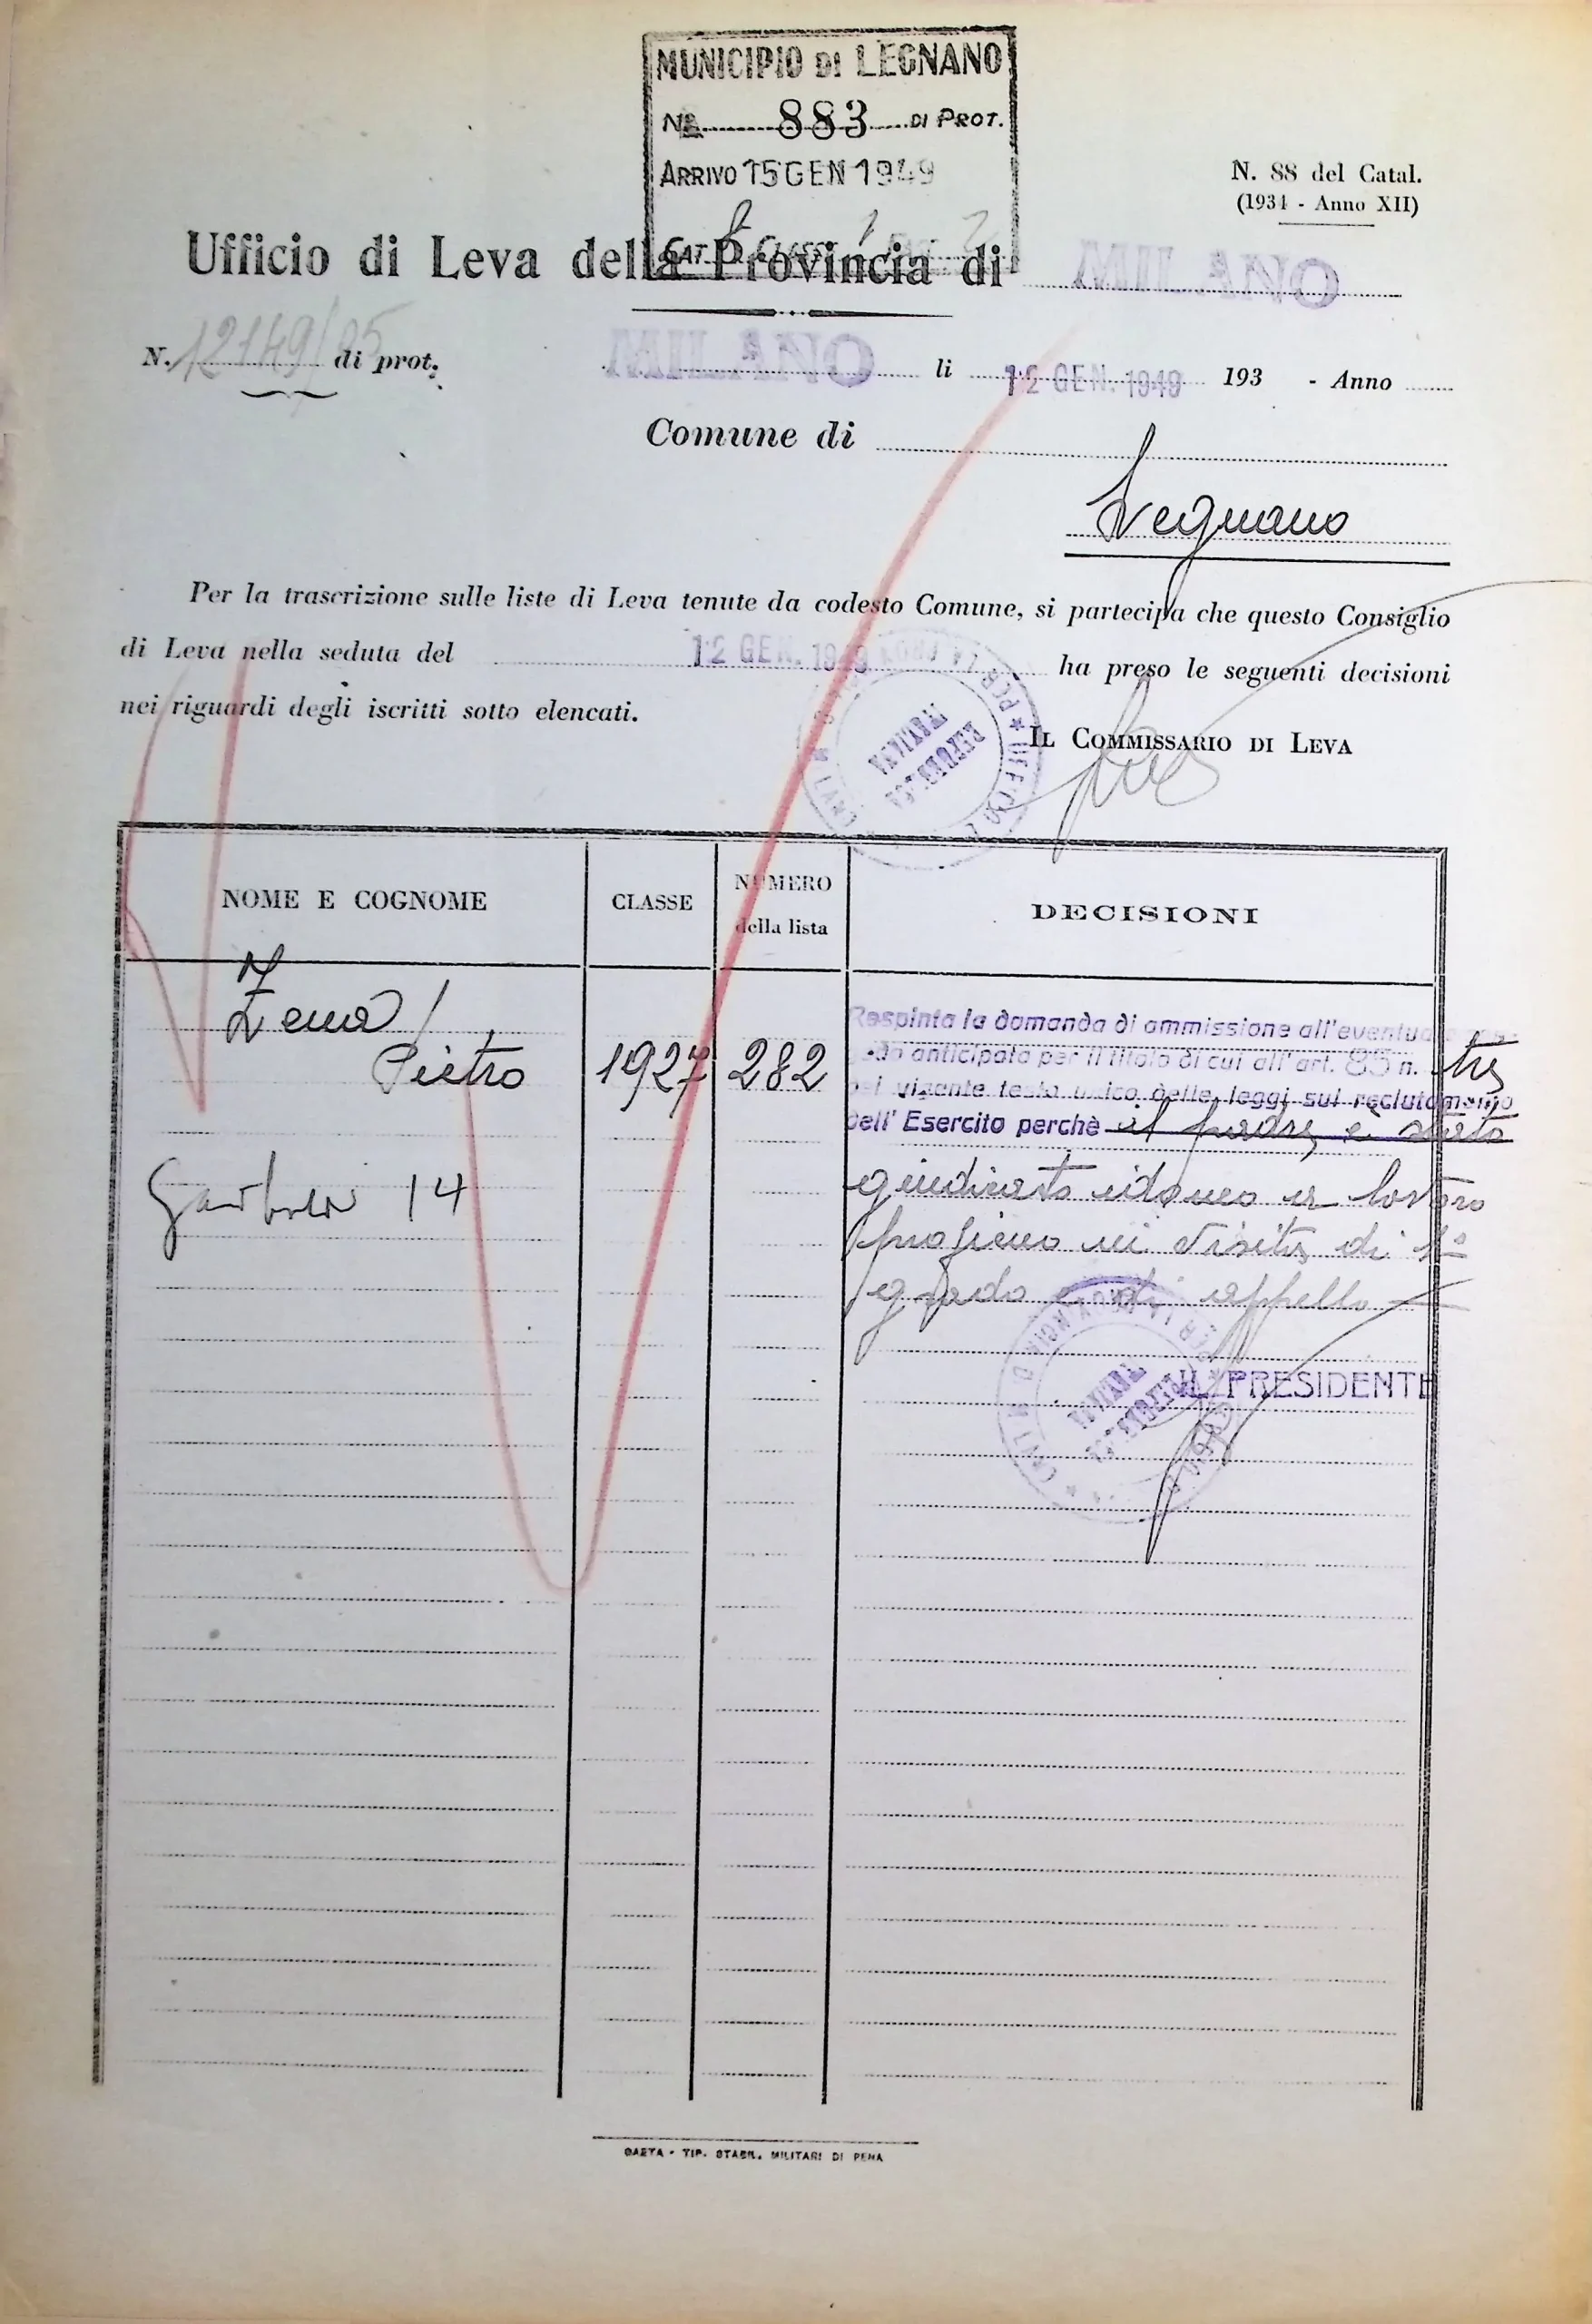 MUNICIPIO DI LEGNANO
No 883 DI PROT.
ARRIVO 15 GEN 1949
CAT. CLASSE 1
N. 88 del Catal.
(1934 - Anno XII)
Ufficio di Leva della Provincia di MILANO
N. 12149/85 di prot. MILANO li 12 GEN. 1949 193 - Anno
Comune di
Legnano
Per la trascrizione sulle liste di Leva tenute da codesto Comune, si partecipa che questo Consiglio
di Leva nella seduta del 12 GEN. 1949 ha preso le seguenti decisioni
nei riguardi degli iscritti sotto elencati.
REPUBBLICA
ITALIANA
IL COMMISSARIO DI LEVA
NOME E COGNOME CLASSE NUMERO della lista DECISIONI
Zema
Pietro 1927 282
Respinta la domanda di ammissione all'eventuale
anticipata per il titolo di cui all'art. 85 n. tre
del vigente testo unico delle leggi sul reclutamento
dell'Esercito perchè il padre è stato
giudicato idoneo a lavoro
proficuo in visita di 1º
grado e di appello
14
IL PRESIDENTE
REPUBBLICA
ITALIANA
GAETA - TIP. STABIL. MILITARI DI PENA